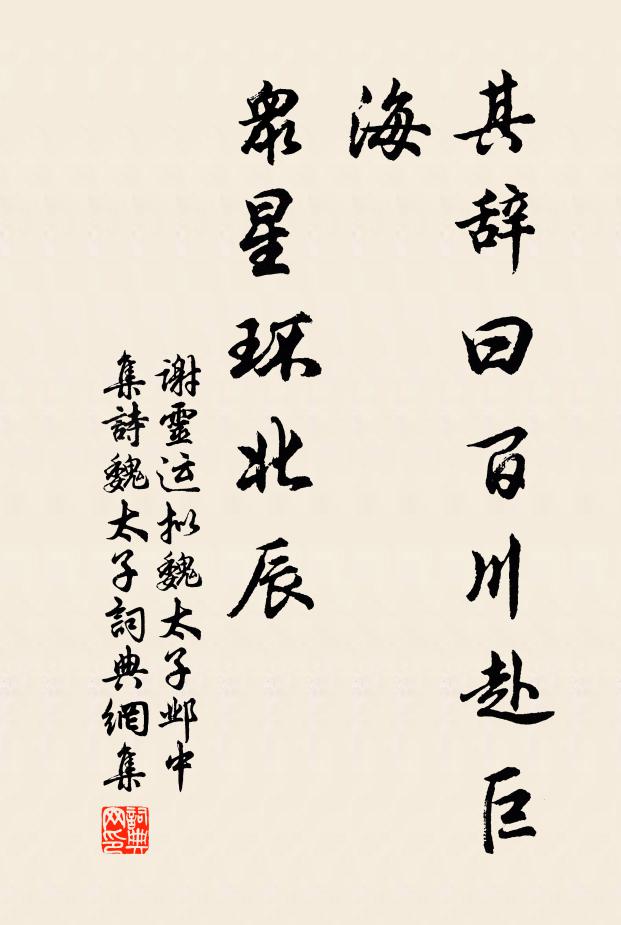 其辞曰百川赴巨
海
眾星环北辰
谢靈运拟魏太子邺中
集詩魏太子詞典網集
詞典网印